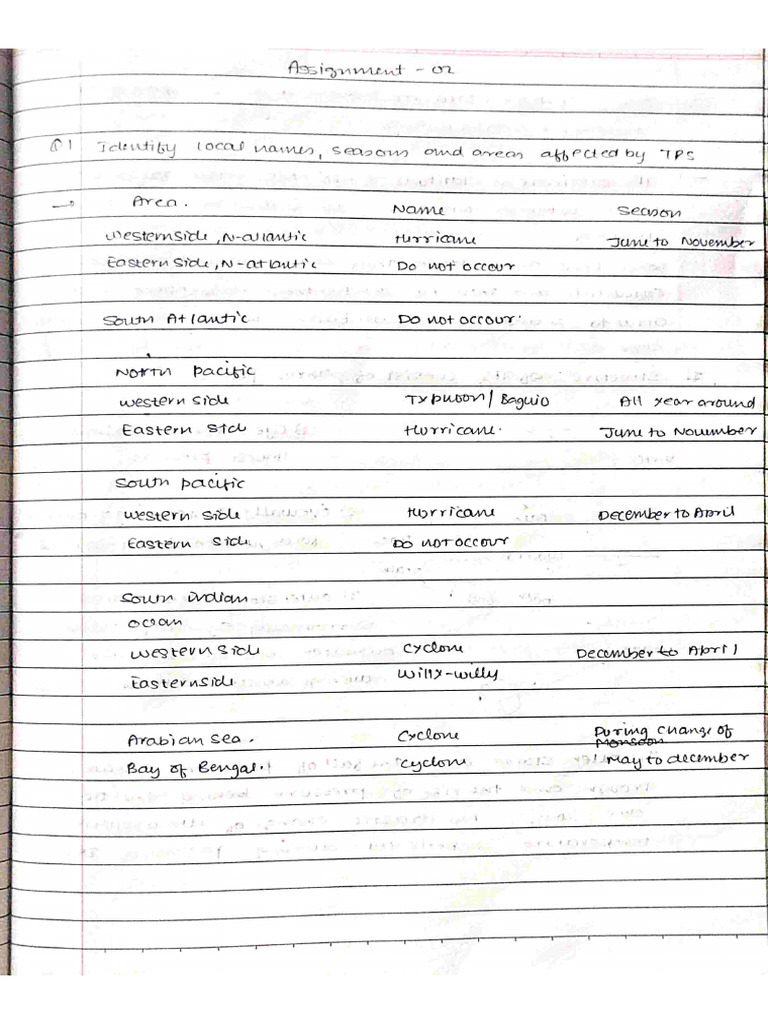 Assignment - 02
Q1 Identify local names, seasons and areas affected by TPS
→ Area. Name Season
Western side, N-atlantic Hurricane June to November
Eastern side, N-atlantic Do not occour
South Atlantic Do not occour.
North pacific
Western side Typhoon / Baguio All year around
Eastern side Hurricane. June to November
South pacific
Western side Hurricane December to April
Eastern side Do not occour
South indian
ocean
Western side Cyclone December to April
Eastern side Willy-willy
Arabian sea. Cyclone During change of
Monsoon
Bay of Bengal. Cyclone May to december